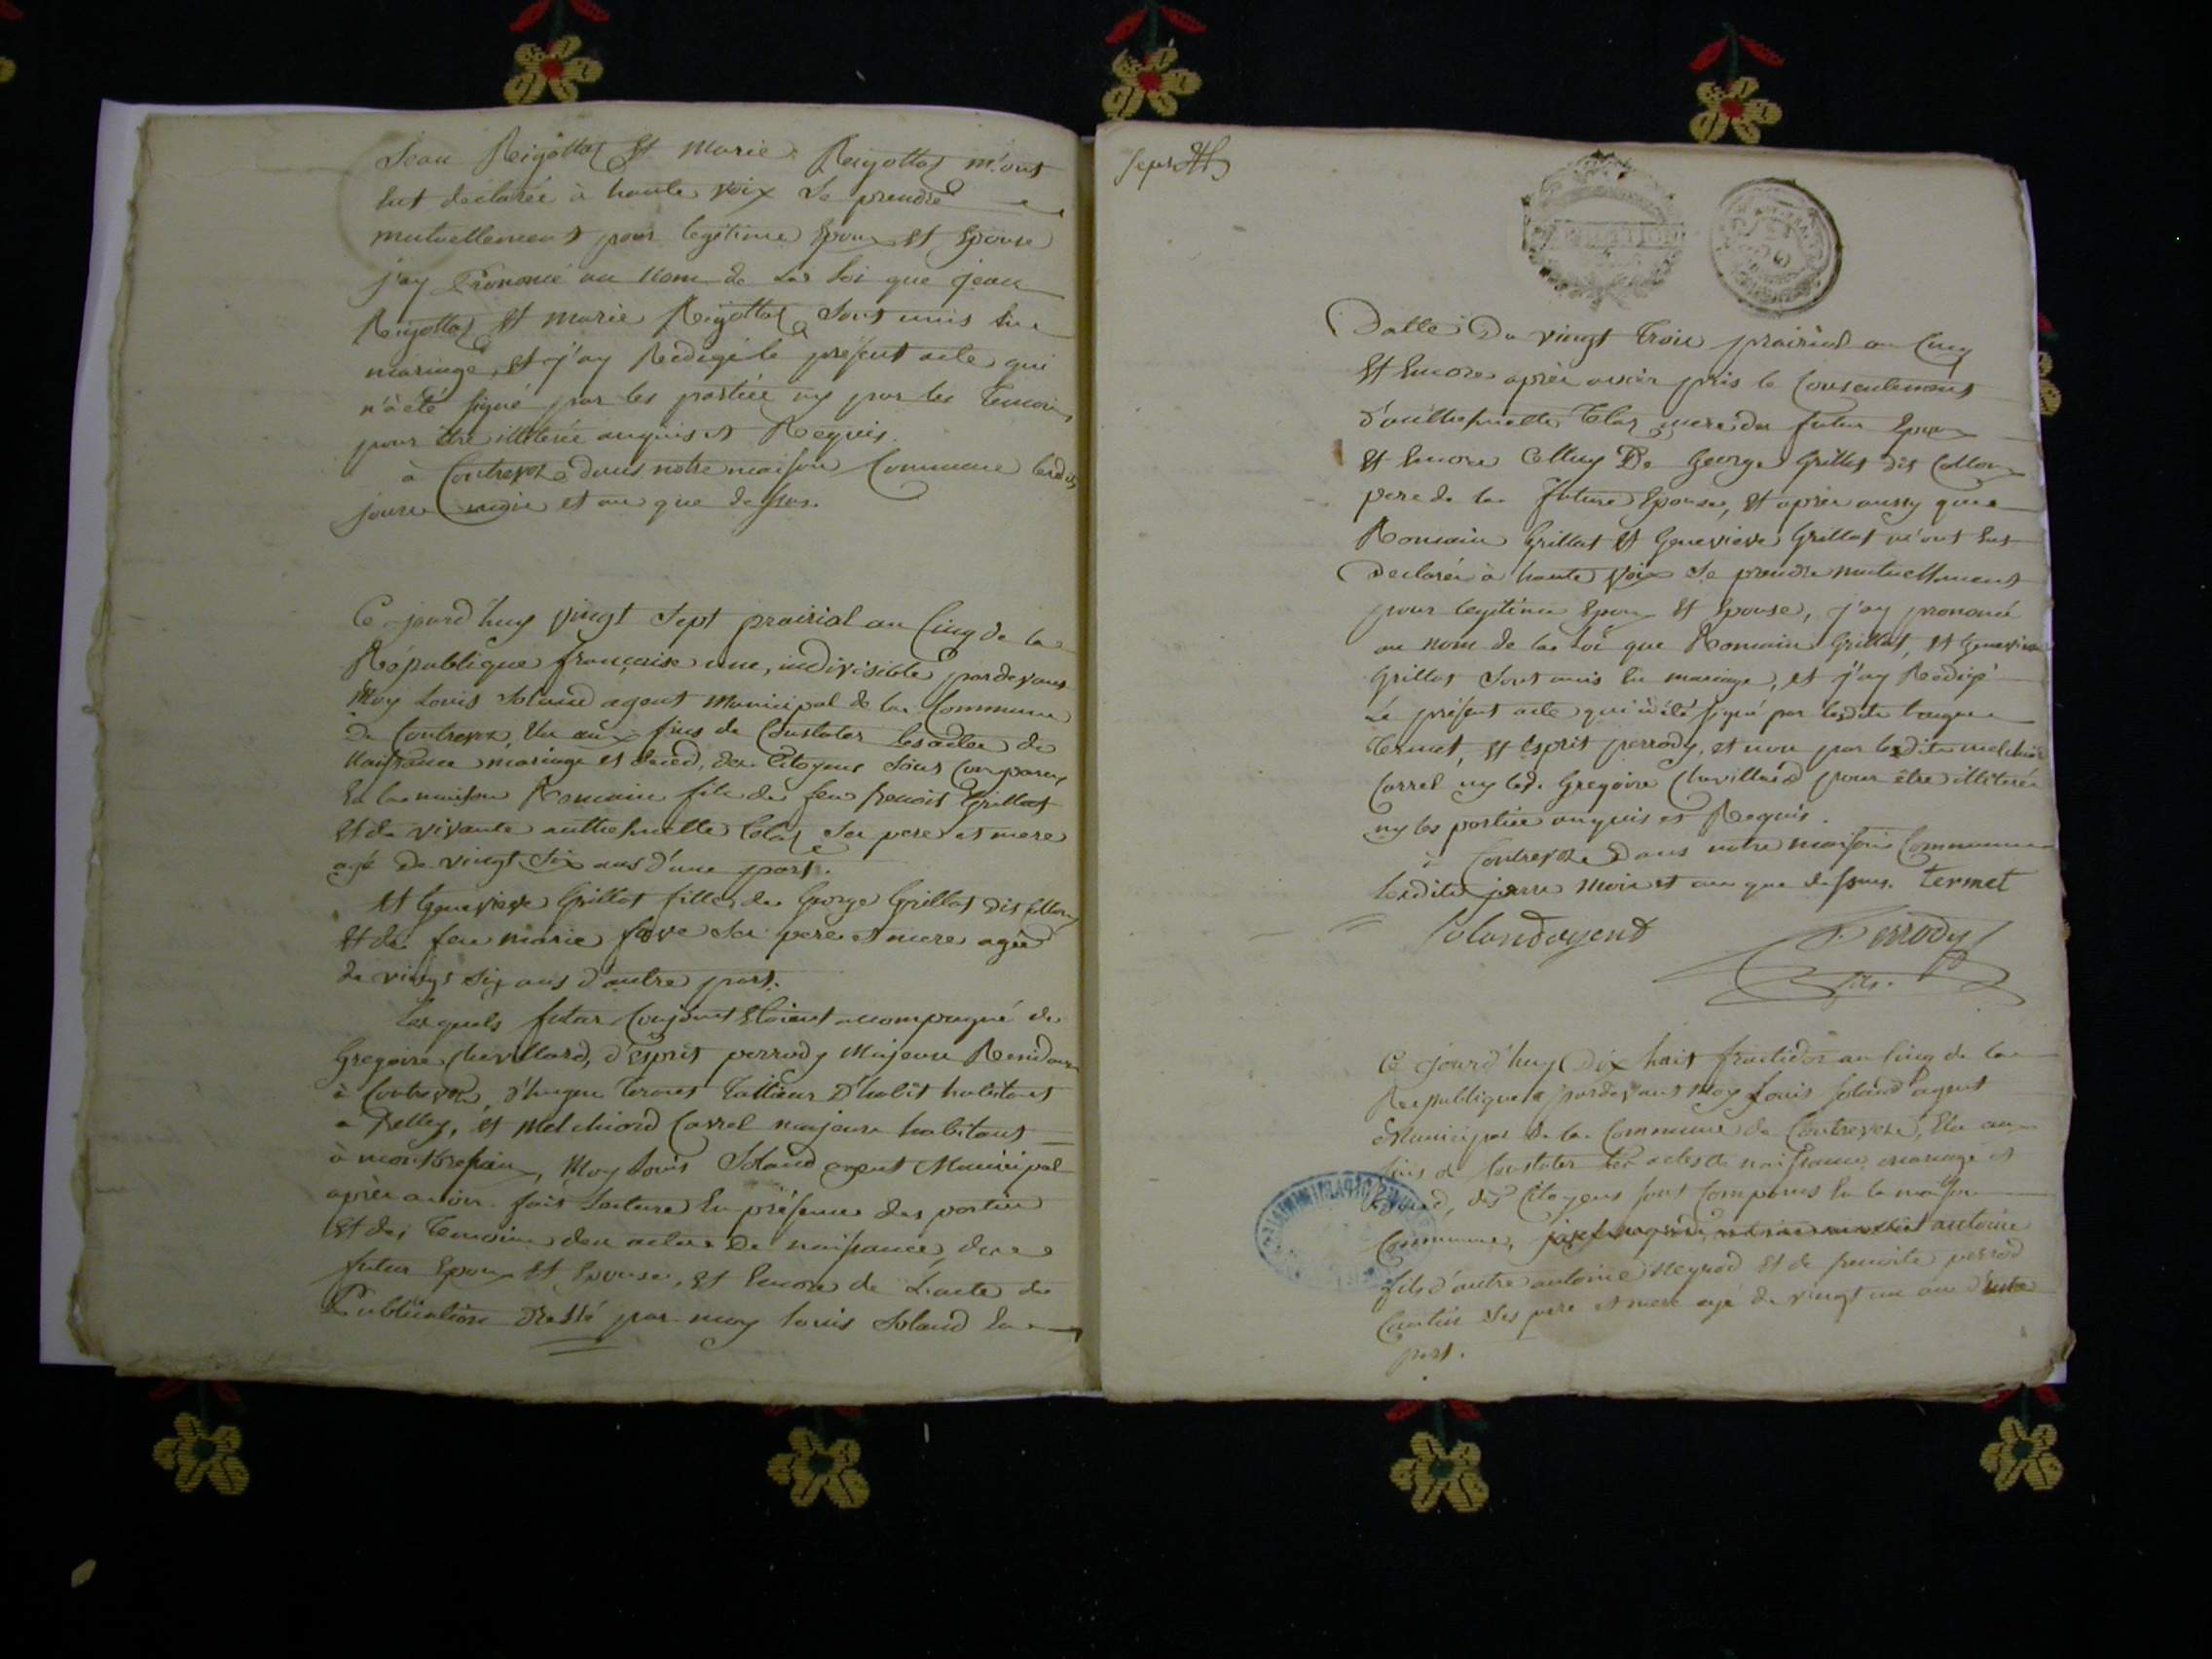 Jean Rigottaz Et Marie Rigottaz m'ont
Eut declarée à haute voix Se prendre
mutuellement pour legitime Epoux Et Epouse
j'ay Prononcé au nom de La Loi que jean
Rigottaz Et marie Rigottaz Sont unis En
mariage, Et j'ay Redigé le présent acte qui
n'à été signé par les partiée ny par les Temoins
pour être illiterée anquis et Requis.
à Contrevoz dans notre maison Commune lesdits
jours mois et an que dessus.
Ce jourd'huy vingt Sept prairial an Cinq de la
République française une, indivisible, pardevant
Moy Louis Soland agent Municipal de la Commune
De Contrevoz, Elu aux fins de Constater les actes de
Naissance mariage et deced, des Citoyens Sont Comparus
En la maison Romain fils de feu Benoit Grillat
Et de vivante anthelmette Telaz Ses pere et mere
agé De vingt Six ans d'une part.
Et Genevieve Grillat fille de George Grillat dit Collon
Et de feu marie fave Ses pere et mere agée
de vingt Six ans d'autre part.
Lesquels futur Conjoint Etoient accompagné de
Gregoire Chevillard, d'Esprit perrody Majeure Residant
à Contrevoz, d'hugue Termet Tallieur D'habit habitant
a Belley, et Melchiord Carrel majeure habitant
à , Moy Louis Soland agent Municipal
après avoir fait Lecture En présence des partiée
Et des Temoins des actes De naissance, des
futur Epoux Et Epouse, Et Encore de L'acte de
Publication Dressé par moy Louis Soland En
Sept
Datte Du vingt Trois prairial an Cinq
Et Encore après avoir pris le Consentement
d'anthelmette Telaz mere du futur Epoux
Et Encore Celluy De George Grillat dit Collon
pere de la future Epouse, Et après aussy que
Romain Grillat Et Genevieve Grillat m'ont Eut
Declarée à haute voix Se prendre mutuellement
pour legitime Epoux Et Epouse, j'ay prononcé
au nom de la Loi que Romain Grillat, Et Genevieve
Grillat Sont unis En mariage, et j'ay Redigé
Le présent acte qui à été signé par lesdits hugue
Termet, Et Esprit perrody, et non par lesdits melchiord
Carrel ny led. Gregoire Chevillard pour être illiterée
ny les partiée anquis et Requis.
à Contrevoz Dans notre maison Commune
lesdits jours mois et an que dessus. Termet
Soland agent Perrody
Ce jourd'huy Dix huit fructidor an Cinq de la
Republique pardevant Moy Louis Soland agent
Municipal de la Commune de Contrevoz, Elu aux
fins de Constater les actes de naissance mariage et
deced, des Citoyens sont Comparus En la maison
Commune, antoine
fils d'autre antoine Meynod Et de Benoite perrod
Ses pere et mere agé de vingt un ans d'une
part.